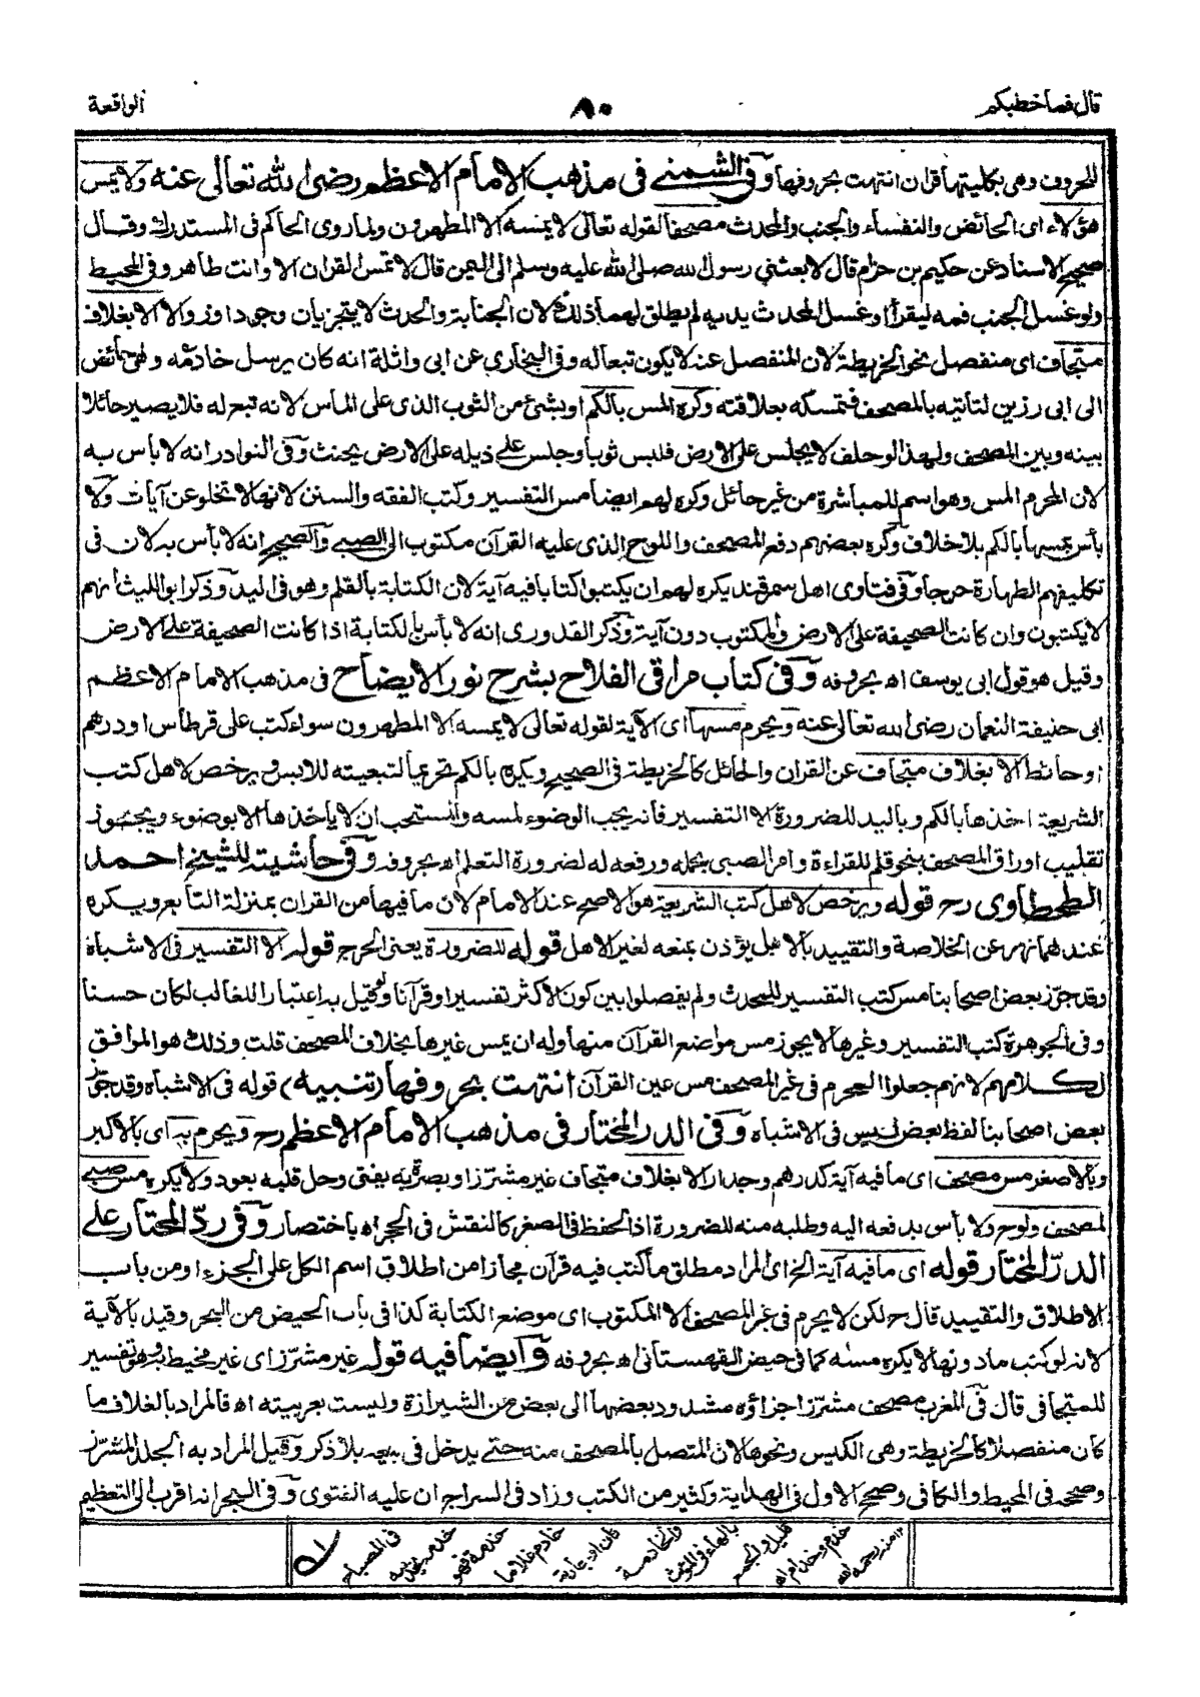 قال فما خطبكم ٨٠ الواقعة
للحروف وهى بكليتها قران انتهت بحروفها وفى الشمنے فى مذهب الامام الاعظم رضى الله تعالى عنه ولا يمس
هؤلاء اى الحائض والنفساء والجنب والمحدث مصحفا لقوله تعالى لا يمسه الا المطهرون ولما روى الحاكم فى المستدرك وقال
صحيح الاسناد عن حكيم بن حزام قال لا بعثنى رسول الله صلى الله عليه وسلم الى اليمن قال لا تمس القران الا وانت طاهر وفى المحيط
ولو غسل الجنب فمه ليقرأ او غسل المحدث يديه لم يطلق لهما ذلك لان الجنابة والحدث لا يتجزيان وجودا وزوالا الا بغلاف
متجاف اى منفصل نحو الخريطة لان المنفصل عنه لا يكون تبعا له وفى البخارى عن ابى واثلة انه كان يرسل خادمه وهى حائض
الى ابى رزين لتاتيه بالمصحف فتمسكه بعلاقته وكره المس بالكم او بشئ من الثوب الذى على الماس لانه تبع له فلا يصير حائلا
بينه وبين المصحف ولهذا لو حلف لا يجلس على الارض فلبس ثوبا وجلس على ذيله على الارض يحنث وفى النوادر انه لا بأس به
لان المحرم المس وهو اسم للمباشرة من غير حائل وكره لهم ايضا مس التفسير وكتب الفقه والسنن لانها لا تخلو عن آيات ولا
بأس بمسها بالكم بلا خلاف وكره بعضهم دفع المصحف واللوح الذى عليه القرآن مكتوب الى الصبے والصحيح انه لا بأس به لان فى
تكليفهم الطهارة حرجا وفى فتاوى اهل سمرقند يكره لهم ان يكتبوا كتابا فيه آية لان الكتابة بالقلم وهو فى اليد وذكر ابو الليث انهم
لا يكتبون وان كانت الصحيفة على الارض والمكتوب دون آية وذكر القدورى انه لا بأس بالكتابة اذا كانت الصحيفة على الارض
وقيل هو قول ابى يوسف اه بحروفه وفى كتاب مراقى الفلاح بشرح نور الايضاح فى مذهب الامام الاعظم
ابى حنيفة النعمان رضى الله تعالى عنه ويحرم مسها اى الآية لقوله تعالى لا يمسه الا المطهرون سواء كتب على قرطاس او درهم
او حائط الا بغلاف متجاف عن القران والحائل كالخريطة فى الصحيح ويكره بالكم تحريما لتبعيته للابس ويرخص لاهل كتب
الشريعة اخذها بالكم وباليد للضرورة الا التفسير فانه يجب الوضوء لمسه والمستحب ان لا يأخذها الا بوضوء ويجوز
تقليب اوراق المصحف بنحو قلم للقراءة وامر الصبى بحمله ورفعه له لضرورة التعلم اه بحروفه وفى حاشيته للشيخ احمد
الطحطاوى رح قوله ويرخص لاهل كتب الشريعة هو الاصح عند الامام لان ما فيها من القران بمنزلة التابع ويكره
عندهما نهر عن الخلاصة والتقييد بالاهل يؤذن بمنعه لغير الاهل قوله للضرورة يعنى الحرج قوله الا التفسير فى الاشباه
وقد جوز بعض اصحابنا مس كتب التفسير للمحدث ولم يفصلوا بين كون الاكثر تفسيرا او قرآنا ولو قيل به اعتبارا للغالب لكان حسنا
وفى الجوهرة كتب التفسير وغيرها لا يجوز مس مواضع القرآن منها وله ان يمس غيرها بخلاف المصحف قلت وذلك هو الموافق
لكلامهم لانهم جعلوا المحرم فى غير المصحف مس عين القرآن انتهت بحروفها (تنبيه) قوله فى الاشباه وقد جوز
بعض اصحابنا لفظ بعض ليس فى الاشباه وفى الدر المختار فى مذهب الامام الاعظم رح ويحرم به اى بالاكبر
وبالاصغر مس مصحف اى ما فيه آية كدرهم وجدار الا بغلاف متجاف غير مشرز او بصرة به يفتى وحل قلبه بعود ولا يكره مس صبے
لمصحف ولوح ولا بأس بدفعه اليه وطلبه منه للضرورة اذ الحفظ فى الصغر كالنقش فى الحجر اه باختصار وفى رد المحتار على
الدر المختار قوله اى ما فيه آية الخ اى المراد مطلق ما كتب فيه قرآن مجازا من اطلاق اسم الكل على الجزء او من باب
الاطلاق والتقييد قال ح لكن لا يحرم فى غير المصحف الا المكتوب اى موضع الكتابة كذا فى باب الحيض من البحر وقيد بالآية
لانه لو كتب ما دونها لا يكره مسه كما فى حيض القهستانى اه بحروفه وايضا فيه قوله غير مشرز اى غير مخيط به وهو تفسير
للمتجافى قال فى المغرب مصحف مشرز اجزاؤه مشدود بعضها الى بعض من الشيرازة وليست بعربيته اه فالمراد بالغلاف ما
كان منفصلا كالخريطة وهى الكيس ونحوها لان المتصل بالمصحف منه حتے يدخل فى بيعه بلا ذكر وقيل المراد به الجلد المشرز
وصححه فى المحيط والكافى وصحح الاول فى الهداية وكثير من الكتب وزاد فى السراج ان عليه الفتوى وفى البحر انه اقرب الى التعظيم
فى المصباح
خادم غلاما
كان او جارية
والخادمة
بالهاء فى المؤنث
قليل والجمع
خدم وخدام اه
١٢ منه رحمه الله